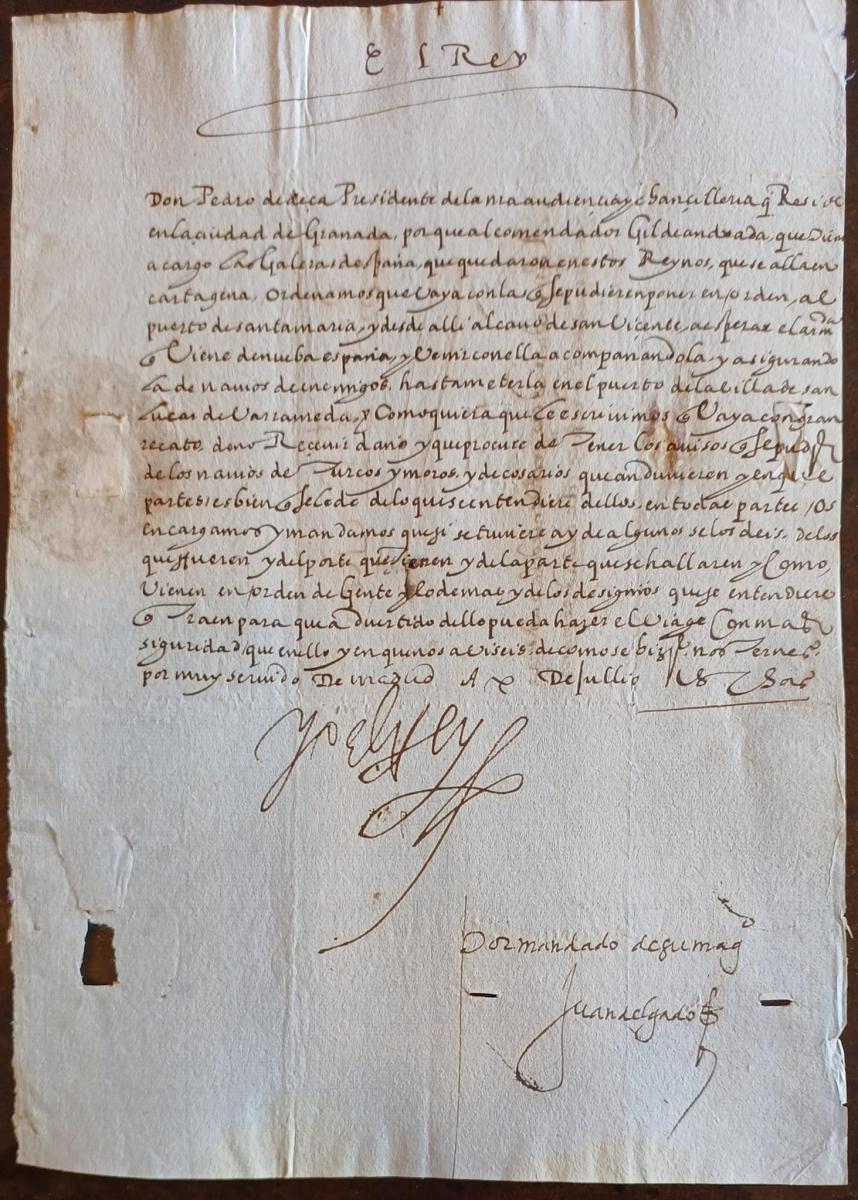 El Rey
Don Pedro de deça Presidente de la nra audiencia y chancilleria q Reside
en la ciudad de Granada, porque al comendador Gil de andrada, que tiene
a cargo las Galeras despaña, que quedaron en estos Reynos, que se alla en
cartagena, ordenamos que vaya con las q se pudieren poner en orden, al
puerto de santa maria, y desde alli al cavo de san Vicente, a esperar el armda
q Viene de nueba españa, y Venir con ella acompañandola, y asigurando
la de navios de enemigos, hasta meterla en el puerto de la villa de san
lucar de Varrameda, y Como quiera que le escrivimos q Vaya con gran
recato, de no Reçevir daño y que procure de Tener los avisos q se pud
de los navios de Turcos y moros, y de cosarios que anduvieren y en que
partes, es bien q se le de de lo que se entendiere dellos, en todas partes, Os
encargamos y mandamos que si se tuviere ay de algunos se los deis, de los
que fueren y del porte que vienen y de la parte que se hallaren y Como
Vienen en orden de Gente y lo demas y de los designios que se entendiere
q Traen para que advertido dello pueda hazer el Viage Con mas
siguridad, que en ello y en que nos aviseis de como se hiz nos Ternes
por muy servido De madrid A x De Jullio
Yo el Rey
Por mandado de su magd
Juan delgado